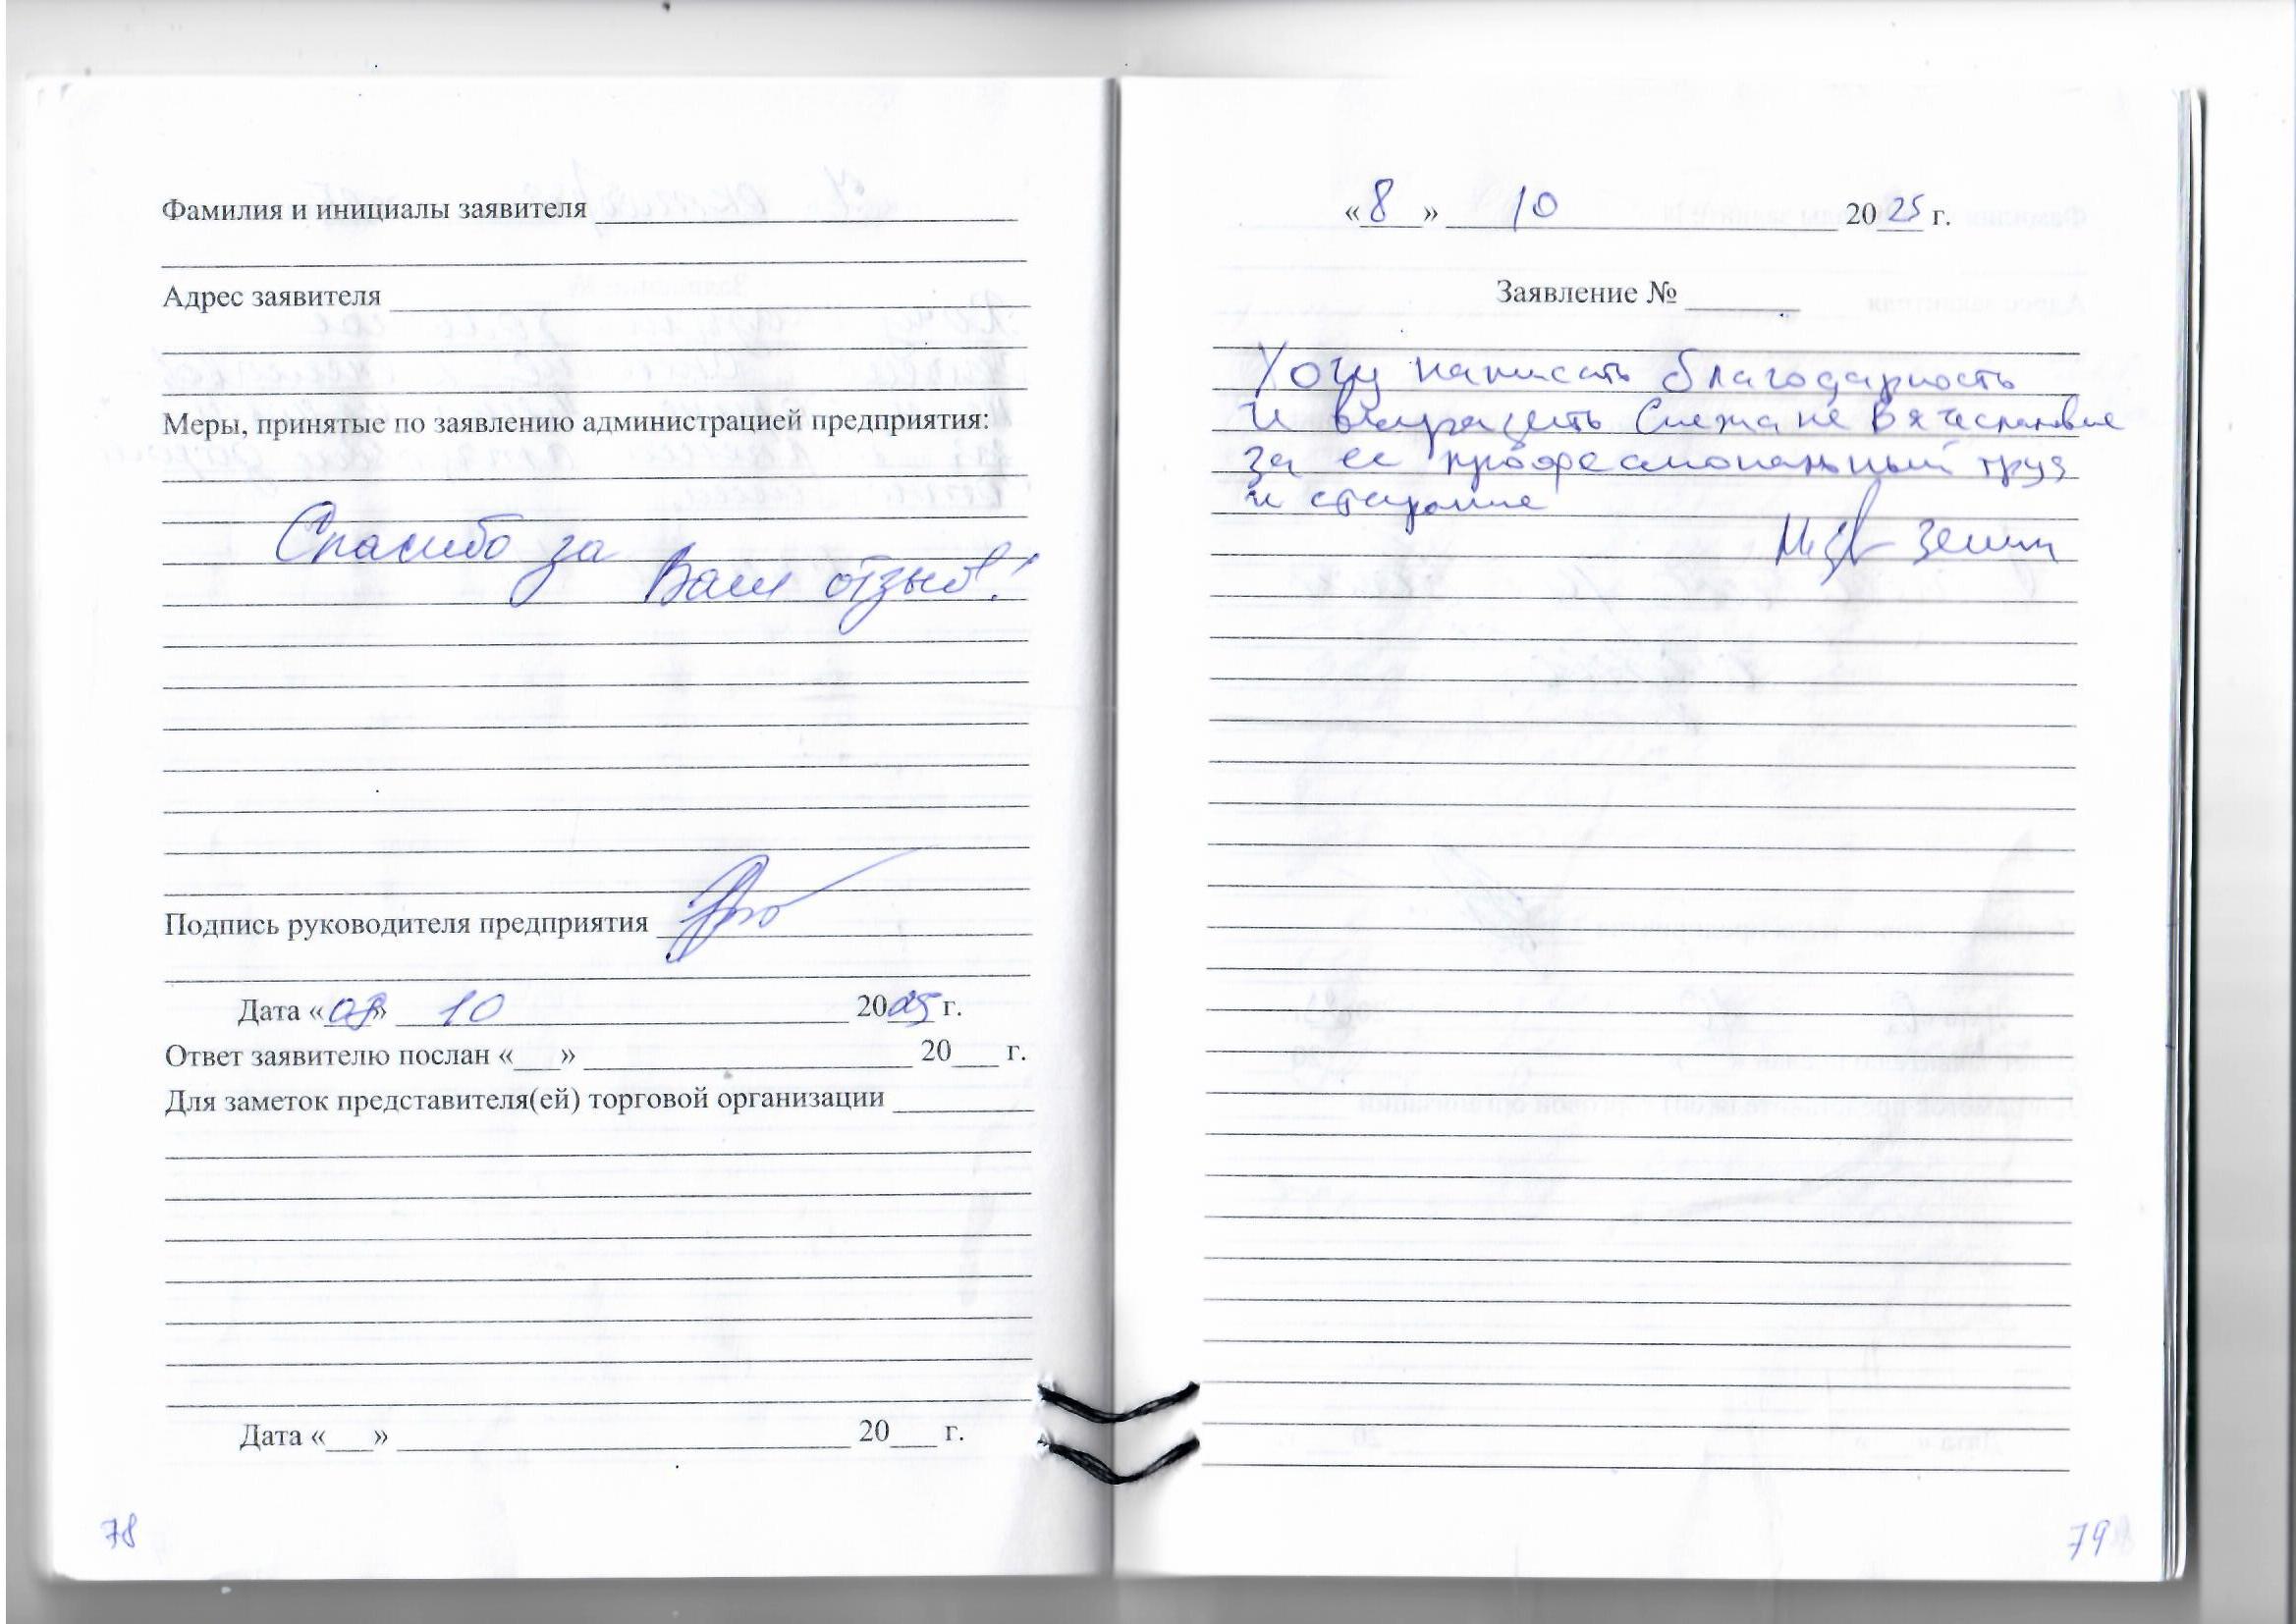 Фамилия и инициалы заявителя
Адрес заявителя
Меры, принятые по заявлению администрацией предприятия:
Спасибо за
Ваш отзыв!
Подпись руководителя предприятия
Дата «08» 10 2025 г.
Ответ заявителю послан «___» 20___ г.
Для заметок представителя(ей) торговой организации
Дата «___» 20___ г.
78
«8» 10 2025 г.
Заявление №
Хочу написать благодарность
и выразить Снежане Вячеславовне
за ее профессиональный труд
и старание
79